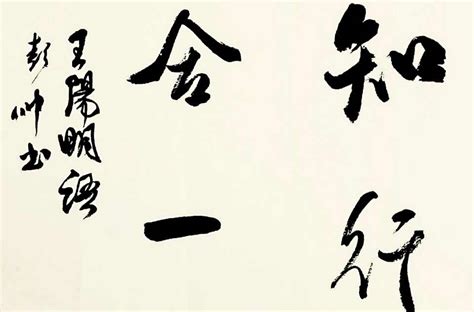 知行
合一
王陽明語
彭书